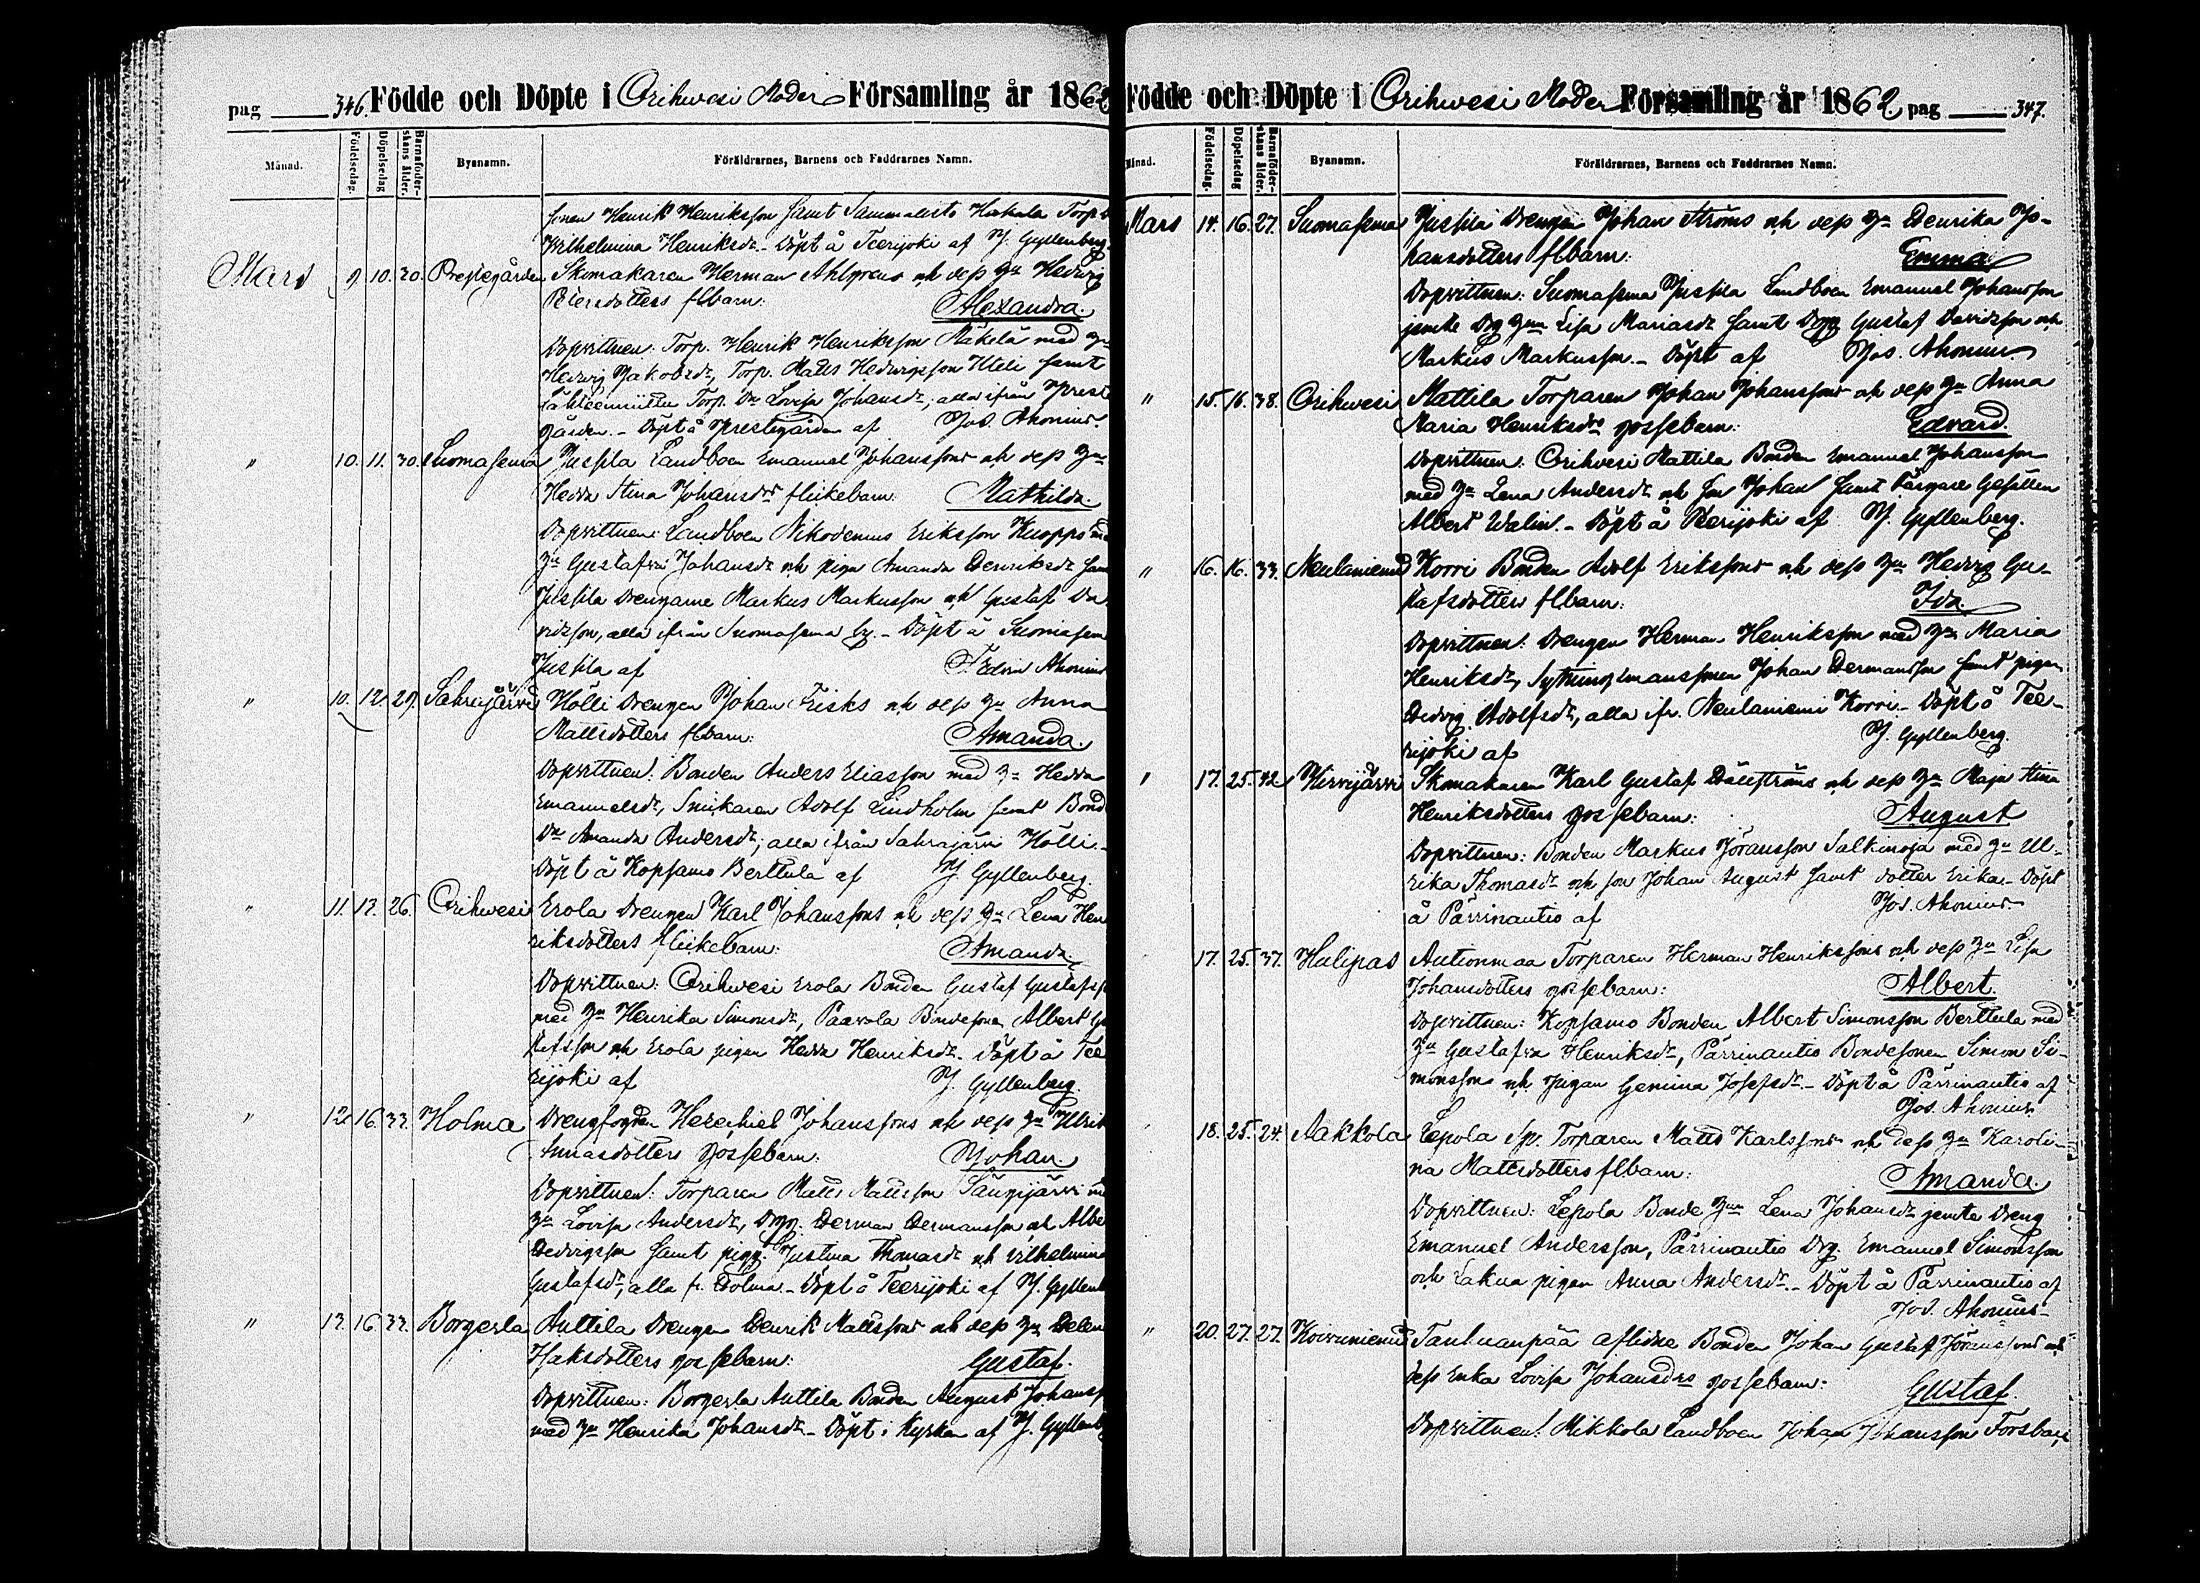 pag 346. Födde och Döpte i Orihwesi Moder Församling år 1862
Månad. Födelsedag. Döpelsedag Barnaföderskans ålder. Byanamn. Föräldrarnes, Barnens och Faddrarnes Namn.
sonen Henrik Henriksson samt Sammalisto Hakala Torp
Wilhelmina Henriksdr - Döpt å Teerijoki af J. Gyllenberg
Mars 9. 10. 30. Prestegården Skomakaren Herman Ahlgrens och dess hu Hedvig
Petersdotters flbarn: Alexandra.
Dopvittnen: Torp. Henrik Henriksson Mäkelä med hu
Hedvig Jakobsdr, Torp. Matts Hedvigsson Uteli samt
Torp. Dr Lovisa Johansdr, alla ifrån Preste
gården. - Döpt å Prestegården af Jos. Ahonius.
" 10. 11. 30. Suomasema Jussila Landboen Emanuel Johanssons och dess hu
Hedda Stina Johansdrs flickebarn: Mathilda.
Dopvittnen: Landboen Nikodemus Eriksson Kuoppo
hu Gustafva Johansdr och pigan Amanda Henriksdr
Jussila drengarne Markus Markusson och Gustaf Da
vidsson, alla ifrån Suomasema by. - Döpt å Suomasem
Jussila af F. Edvin Ahonius
" 10. 12. 29. Sahrajärvi Hölli Drengen Johan Frisks och dess hu Anna
Mattsdotters flbarn: Amanda.
Dopvittnen: Bonden Anders Eliasson med hu Hedda
Emanuelsdr, Snickaren Adolf Lindholm samt Bond
Dr Amanda Andersdr, alla ifrån Sahrajärvi Hölli.-
Döpt å Kopsamo Berttula af J. Gyllenberg.
" 11. 12. 26. Orihwesi Erola Drengen Karl Johanssons och dess hu Lena Hen
riksdotters flickebarn: Amanda
Dopvittnen: Orihwesi Erola Bonden Gustaf Gustafss
med hu Henrika Simonsdr, Paavola Bondesonen Albert Gu
stafsson och Erola pigan Hedda Henriksdr. Döpt å Tee
rijoki af J. Gyllenberg.
" 12 16. 33. Holma Drengfogden Hezechiel Johanssons och dess hu Ulrik
Annasdotters gossebarn: Johan.
Dopvittnen: Torparen Matts Mattsson Säugijärvi
hu Lovisa Andersdr, Drgg. Herman Hermansson och Albe
Hedvigsson samt pigg. Justina Thomasdr och Vilhelmina
Gustafsdr, alla fr. Holma.- Döpt å Teerijoki af J. Gyllenb
" 13. 16 33. Borgerla Anttila Drengen Henrik Mattssons och dess hu Helen
Isaksdotters gossebarn: Gustaf.
Dopvittnen: Borgerla Anttila Bonden August Johanss
med hu Henrika Johansdr - Döpt i Kyrkan af J. Gyllenb
Födde och Döpte i Orihwesi Moder Församling år 1862 pag 347.
Månad. Födelsedag. Döpelsedag Barnaföderskans ålder. Byanamn. Föräldrarnes, Barnens och Faddrarnes Namn.
Mars 14. 16. 27. Suomasema Jussila Drengen Johan Ströms och dess hu Henrika Jo-
hansdotters flbarn: Emma
Dopvittnen: Suomasema Jussila Landboen Emanuel Johansson
jemte Drg hun Lisa Mariasdr samt Drgg Gustaf Davidsson och
Markus Markusson.- Döpt af Jos. Ahonius
" 15. 16. 38. Orihwesi Mattila Torparen Johan Johanssons och dess hu Anna
Maria Henriksdrs gossebarn: Edvard.
Dopvittnen: Orihwesi Mattila Bonden Emanuel Johansson
med hu Lena Andersdr och son Johan samt Färgare Gesällen
Albert Walin.- Döpt å Teerijoki af J. Gyllenberg.
" 16. 16. 33. Neulaniemi Korri Bonden Adolf Erikssons och dess hu Hedvig Gus-
tafsdotters flbarn: Ida
Dopvittnen: Drengen Herman Henriksson med hu Maria
Henriksdr, Sytningsmanssonen Johan Hermansson samt pigan
Hedvig Adolfsdr, alla ifr. Neulaniemi Korri.- Döpt å Tee-
rijoki af J. Gyllenberg.
" 17. 25. 42 Hirvijärvi Skomakaren Karl Gustaf Dällströms och dess hu Maja Stina
Henriksdotters gossebarn: August
Dopvittnen: Bonden Markus Jöransson Salkinoja med hu Ul-
rika Thomasdr och son Johan August samt dotter Erika.- Döpt
å Pärrinautio af Jos. Ahonius.
17. 25. 37. Hulipas Autionmaa Torparen Herman Henrikssons och dess hu Lisa
Johansdotters gossebarn: Albert.
Dopvittnen: Kopsamo Bonden Albert Simonsson Berttula med
hu Gustafva Henriksdr, Pärrinautio Bondesonen Simon Si-
monsson och pigan Gemina Josefsdr.- Döpt å Pärrinautio af
Jos. Ahonius
18. 25. 24. Aakkola Lepola Sp. Torparen Matts Karlssons och dess hu Karoli-
na Mattsdotters flbarn: Amanda.
Dopvittnen: Lepola Bonde hun Lena Johansdr jemte Dreng
Emanuel Andersson, Pärrinautio Drg. Emanuel Simonsson
och Lakua pigan Anna Andersdr.- Döpt å Pärrinautio af
Jos. Ahonius
" 20. 27. 27. Koivuniemi Tanhuanpää aflidne Bonden Johan Gustaf Jöranssons och
dess Enka Lovisa Johansdrs gossebarn: Gustaf.
Dopvittnen: Mikkola Landboen Johan Johansson Forsbac